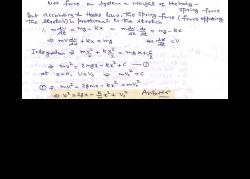 Net force on system = Weight of the body - spring force
But According to Hooks law, the spring force (force opposing
the stretch) is proportional to the stretch
∴ m dv/dt = mg - kx ⇒ m dv/dx · dx/dt = mg - kx
⇒ mv dv/dx + kx = mg as dx/dt = v
Integration ⇒ mv²/2 + kx²/2 = mgx + c/2
⇒ mv² = 2mgx - kx² + C —①
at x=0, v=v₀ ⇒ mv₀² = C
① ⇒ mv² = 2gmx - kx² + mv₀²
⇒ v² = 2gx - k/m x² + v₀² Answer